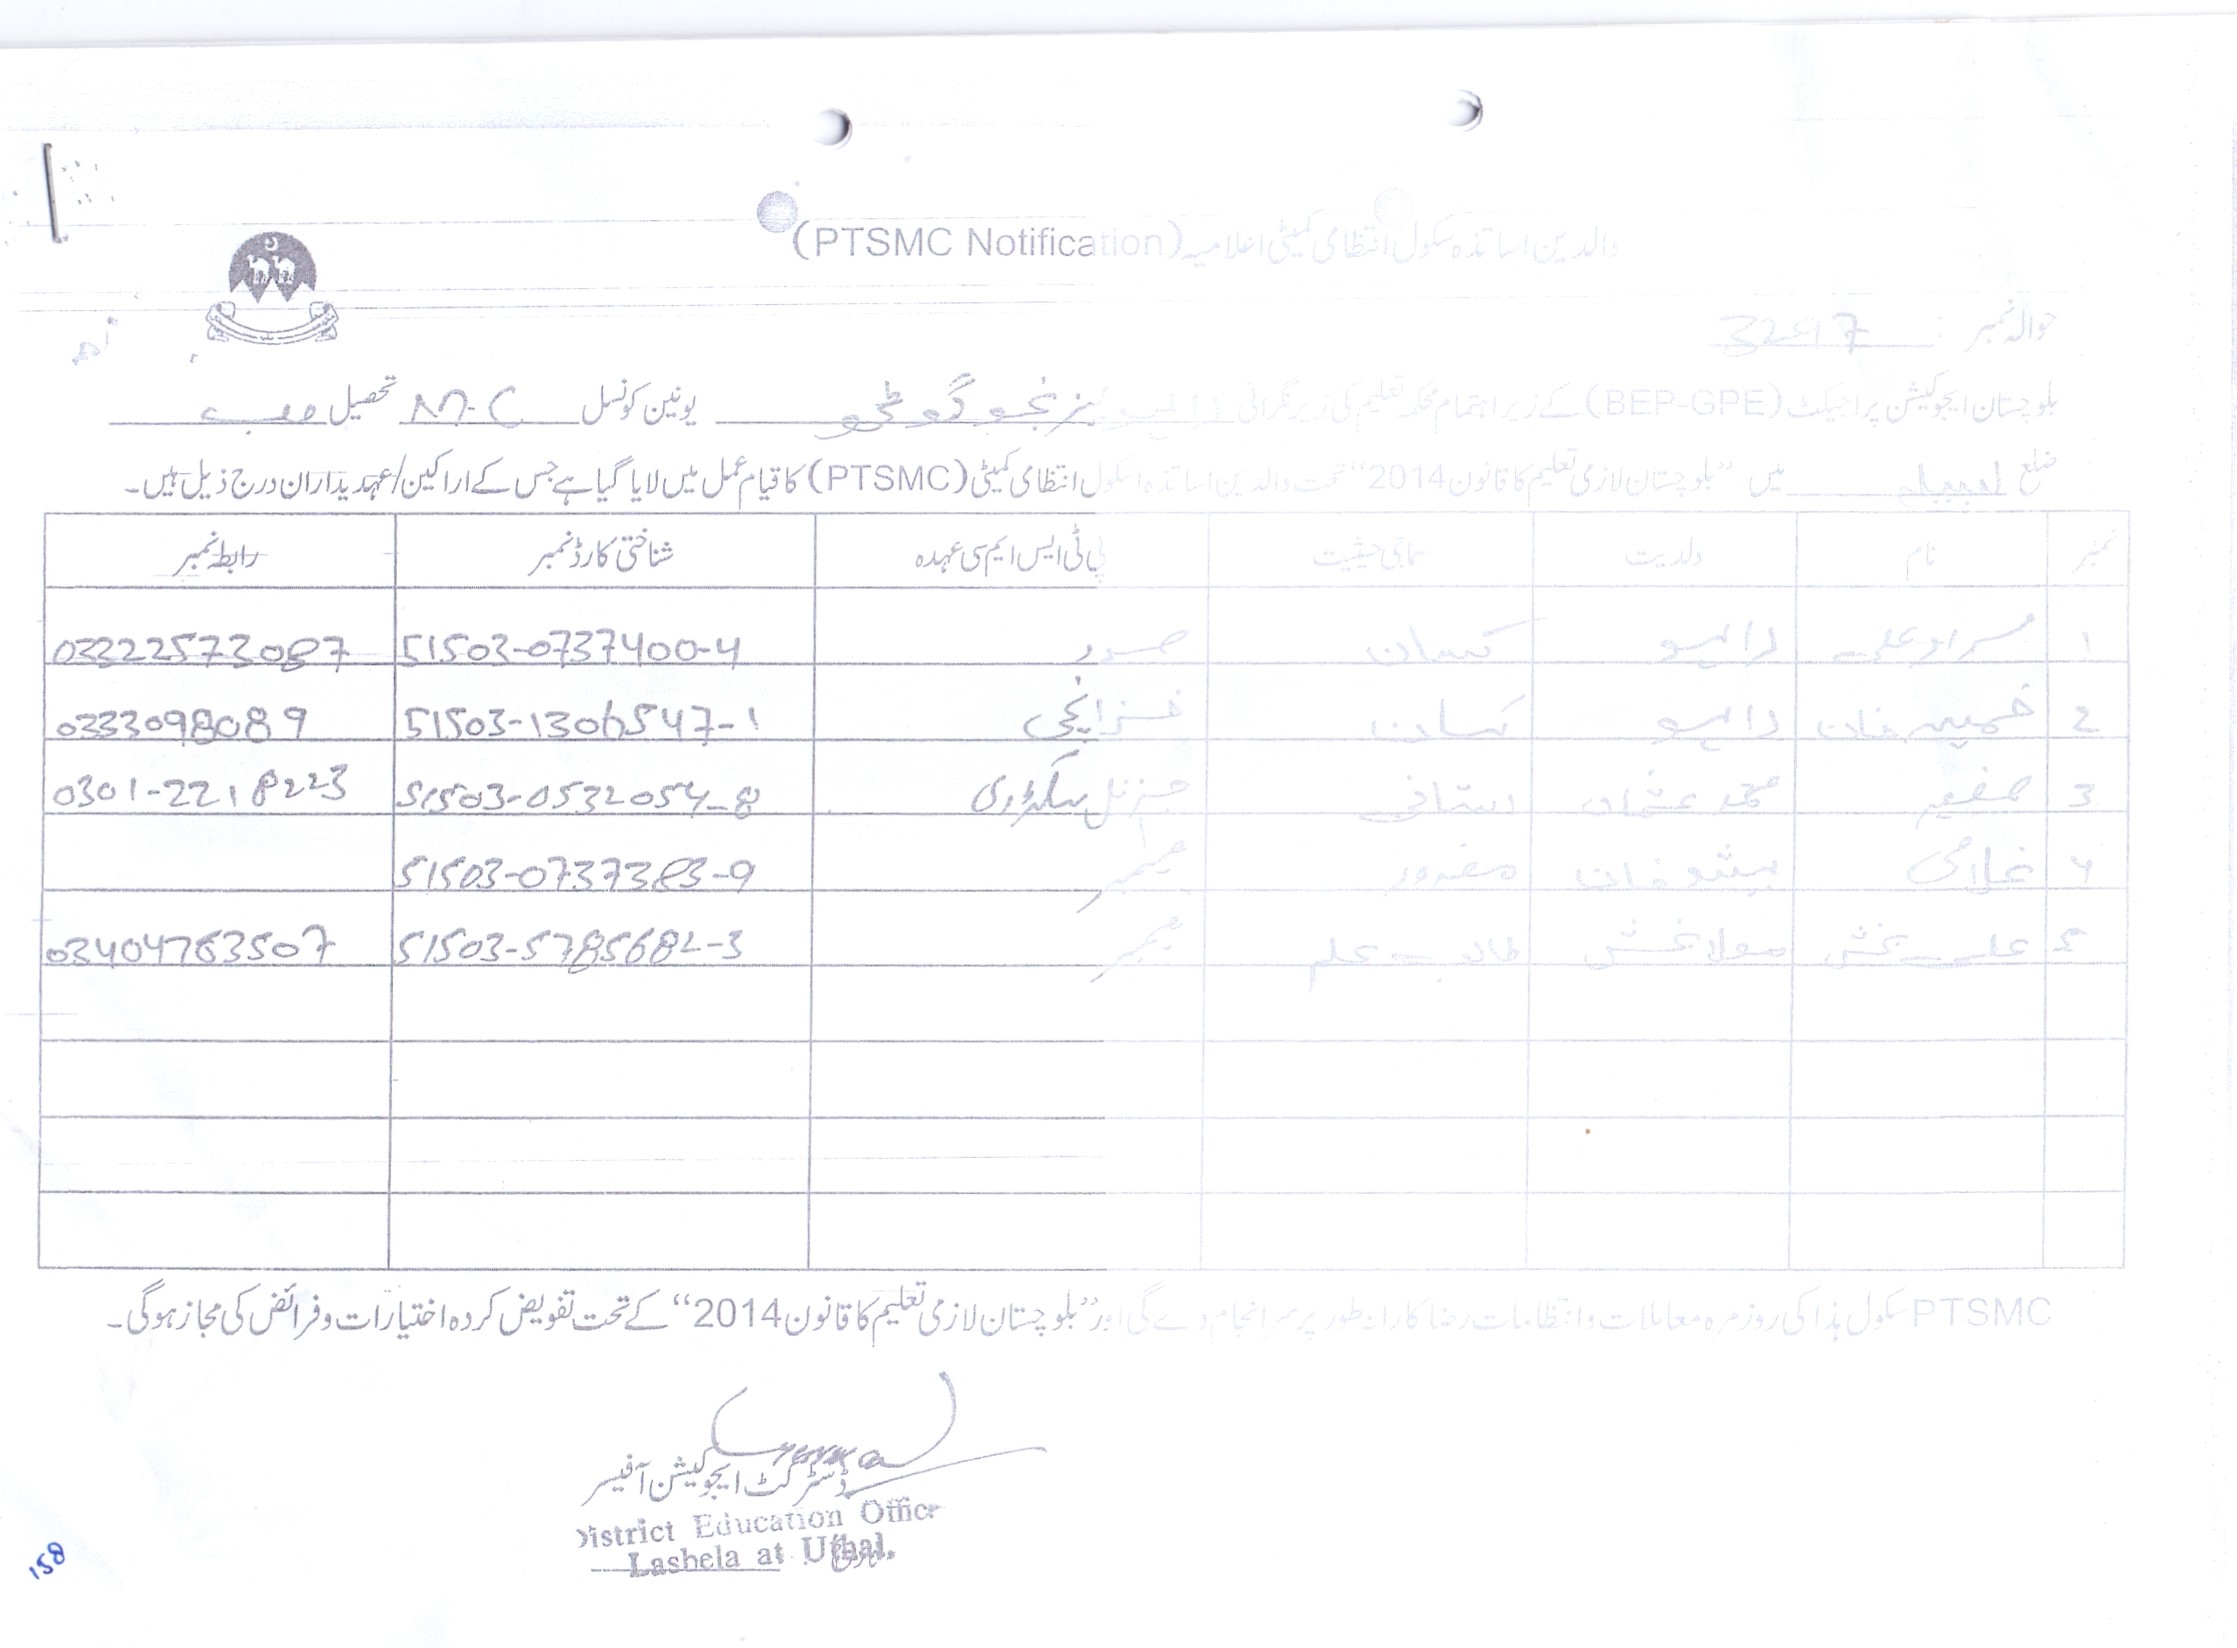 والدین اساتذہ سکول انتظامی کمیٹی اعلامیہ (PTSMC Notification)
حوالہ نمبر : 3297
بلوچستان ایجوکیشن پراجیکٹ (BEP-GPE) کے زیر اہتمام محکمہ تعلیم کی زیر نگرانی بزنجو گوٹھ یونین کونسل M.C تحصیل
ضلع لسبیلہ میں "بلوچستان لازمی تعلیم کا قانون 2014" تحت والدین اساتذہ اسکول انتظامی کمیٹی (PTSMC) کا قیام عمل میں لایا گیا ہے جس کے اراکین/عہدیداران درج ذیل ہیں۔
نمبر نام ولدیت سماجی حیثیت پی ٹی ایس ایم سی عہدہ شناختی کارڈ نمبر رابطہ نمبر
1 کسان صدر 51503-0737400-4 03222573087
2 خان کسان خزانچی 51503-1306547-1 0333098089
3 محمد عثمان استانی جنرل سیکٹری 51503-0532054-8 0301-2218223
4 ممبر 51503-0737383-9
5 علی بخش مولا بخش طالب علم ممبر 51503-5785682-3 03404763507
PTSMC سکول ہذا کی روزمرہ معاملات و انتظامات رضا کارانہ طور پر سرانجام دے گی اور "بلوچستان لازمی تعلیم کا قانون 2014" کے تحت تفویض کردہ اختیارات و فرائض کی مجاز ہوگی۔
ڈسٹرکٹ ایجوکیشن آفیسر
District Education Officer
Lasbela at Uthal.
158